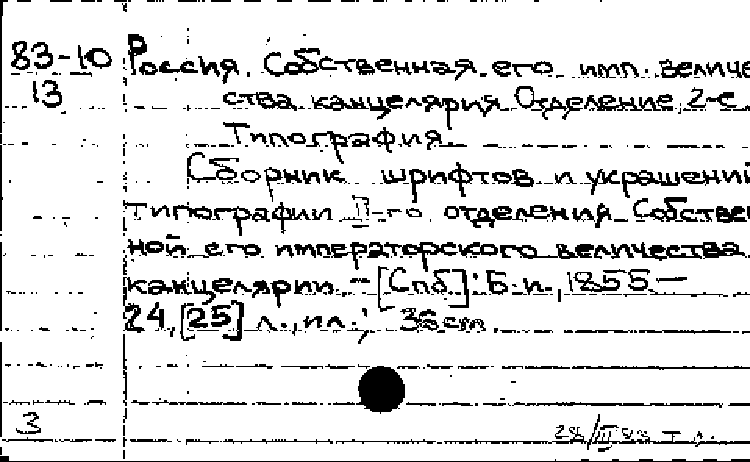 83-10 Россия. Собственная его имп. величе
13 ства канцелярия. Отделение, 2-е
Типография.
Сборник шрифтов и украшений
типографии II-го отделения Собствен
ной его императорского величества
канцелярии. - [Спб]: Б.и., 1855 -
24, [25] л., ил.; 36 см
3
28/III 83